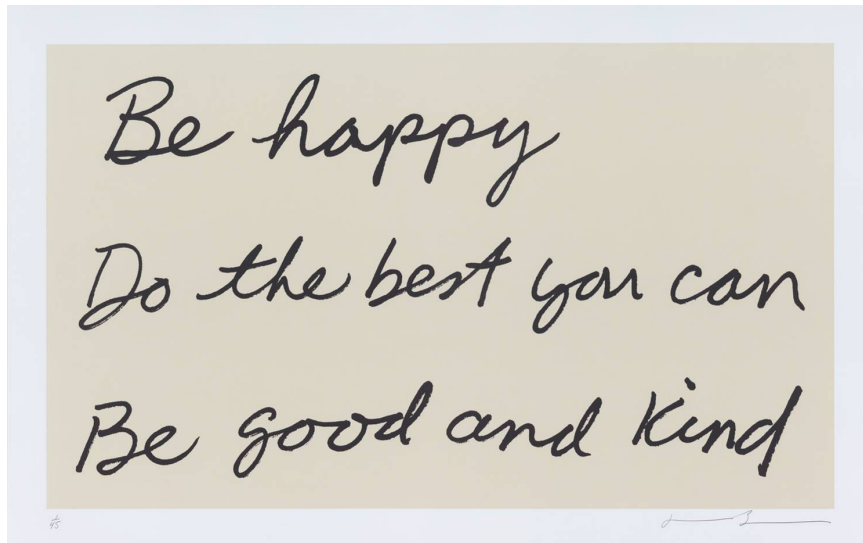 Be happy
Do the best you can
Be good and kind